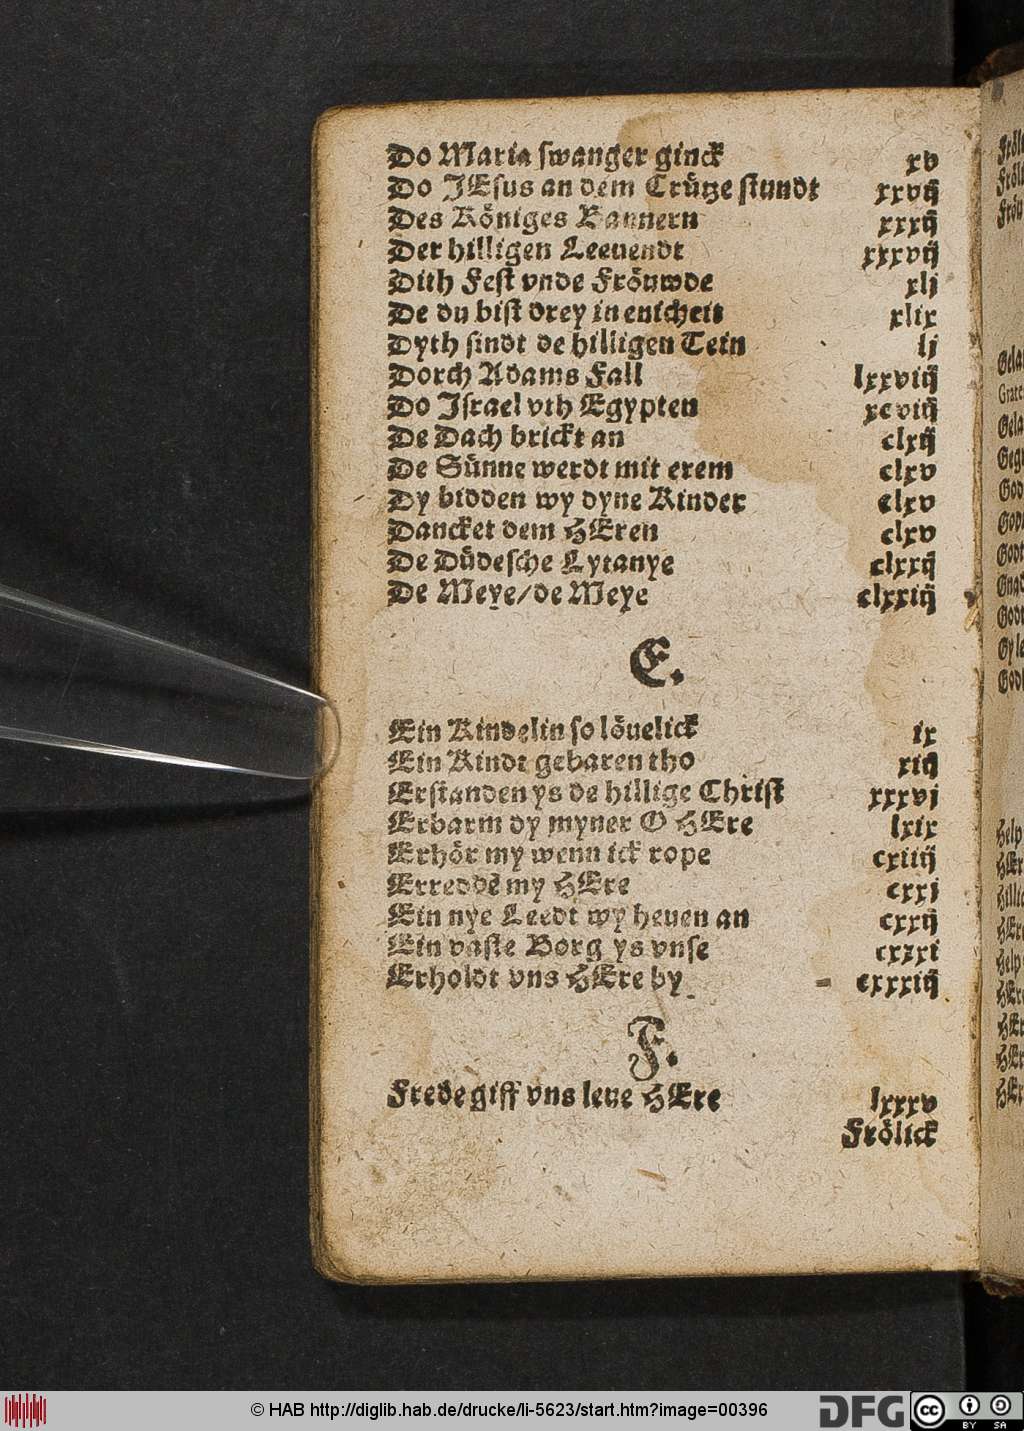 Do Maria swanger ginck xv
Do JEsus an dem Crütze stundt xxvij
Des Königes Bannern xxxij
Der hilligen Leeuendt xxxvij
Dith Fest vnde Fröuwde xlj
De du bist drey in enicheit xlix
Dyth sindt de hilligen Tein lj
Dorch Adams Fall lxxviij
Do Israel vth Egypten xcviij
De Dach brickt an clxij
De Sünne werdt mit erem clxv
Dy bidden wy dyne Kinder clxv
Dancket dem HEren clxv
De Düdesche Lytanye clxxij
De Meye/de Meye clxxiij
E.
Ein Kindelin so löuelick ix
Ein Kindt gebaren tho xiij
Erstanden ys de hillige Christ xxxvj
Erbarm dy myner O HEre lxix
Erhör my wenn ick rope cxiiij
Erredde my HEre cxxj
Ein nye Leedt wy heuen an cxxij
Ein vaste Borg ys vnse cxzxi
Erholdt vns HEre by cxxxiij
F.
Frede giff vns leue HEre lxxxv
Frölick
© HAB http://diglib.hab.de/drucke/li-5623/start.htm?image=00396
DFG
cc BY SA